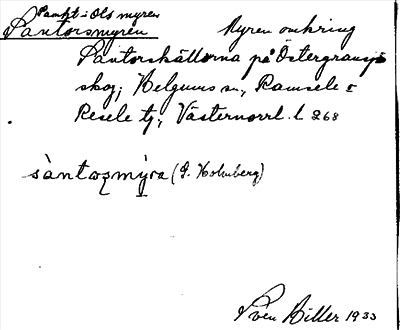 Sankt-Ols myren
Santorsmyren Myren omkring
Santorskällorna på Östergransjö
skog; Helgums sn, Ramsele o
Resele tg, Västernorrl. l. 268
sàntoʂmỳra (S. Holmberg)
Sven Hiller 1933